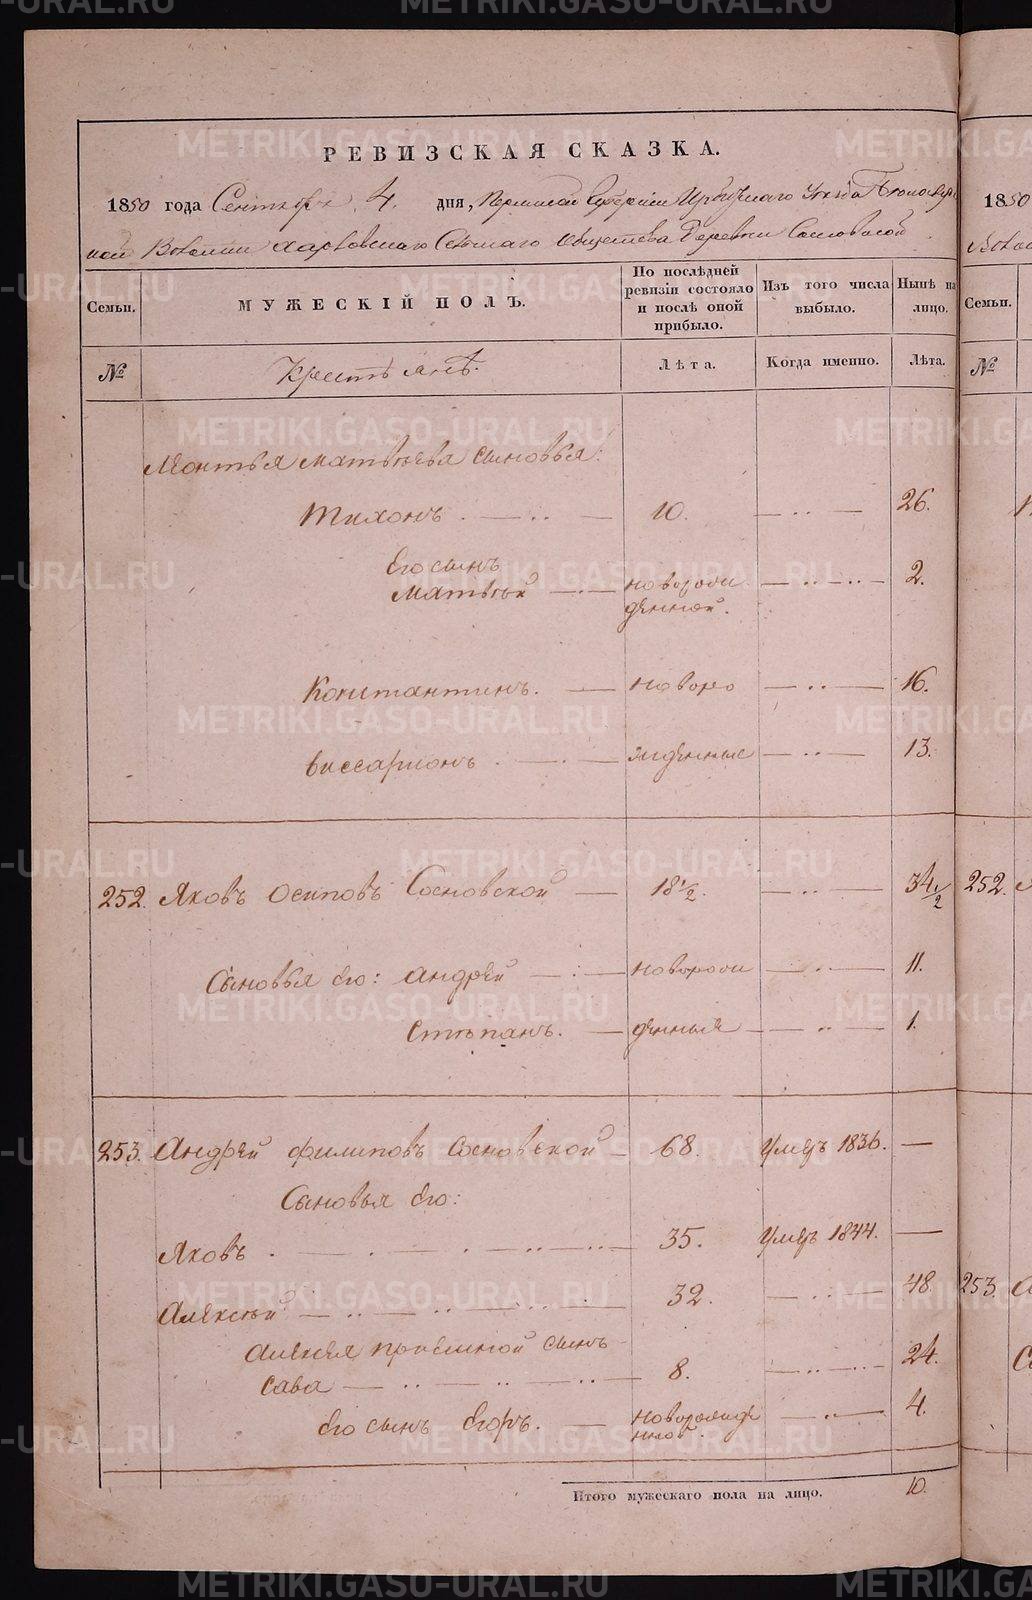 РЕВИЗСКАЯ СКАЗКА.
1850 года Сентября 4. дня, Пермской Губернiи Ирбитскаго Уезда
ской Волости Харловскаго Сельскаго Общества Деревни Сосновской
Семьи. МУЖЕСКIЙ ПОЛЪ. По послѣдней ревизiи состояло и послѣ оной прибыло. Изъ того числа выбыло. Нынѣ на лицо.
№ Крестьянъ. Лѣта. Когда именно. Лѣта.
Леонтья Матвѣева сыновья:
Тихонъ 10. 26.
Его сынъ
Матвѣй новорож 2.
денной.
Константинъ. новоро 16.
Виссарiонъ жденные 13.
252. Яковъ Осиповъ Сосновской 18 1/2. 34 1/2
Сыновья его: Андрей новорож 11.
Степанъ. денныя 1.
253. Андрей Филиповъ Сосновской 68. Умеръ 1836.
Сыновья его:
Яковъ 35. Умеръ 1844.
Алексѣй 32. 48.
Алексея прiемной сынъ
Сава 8. 24.
Его сынъ Егоръ. новорожде 4.
нной.
Итого мужескаго пола на лицо. 10.
1850
Семьи.
№
252.
253.
METRIKI.GASO-URAL.RU